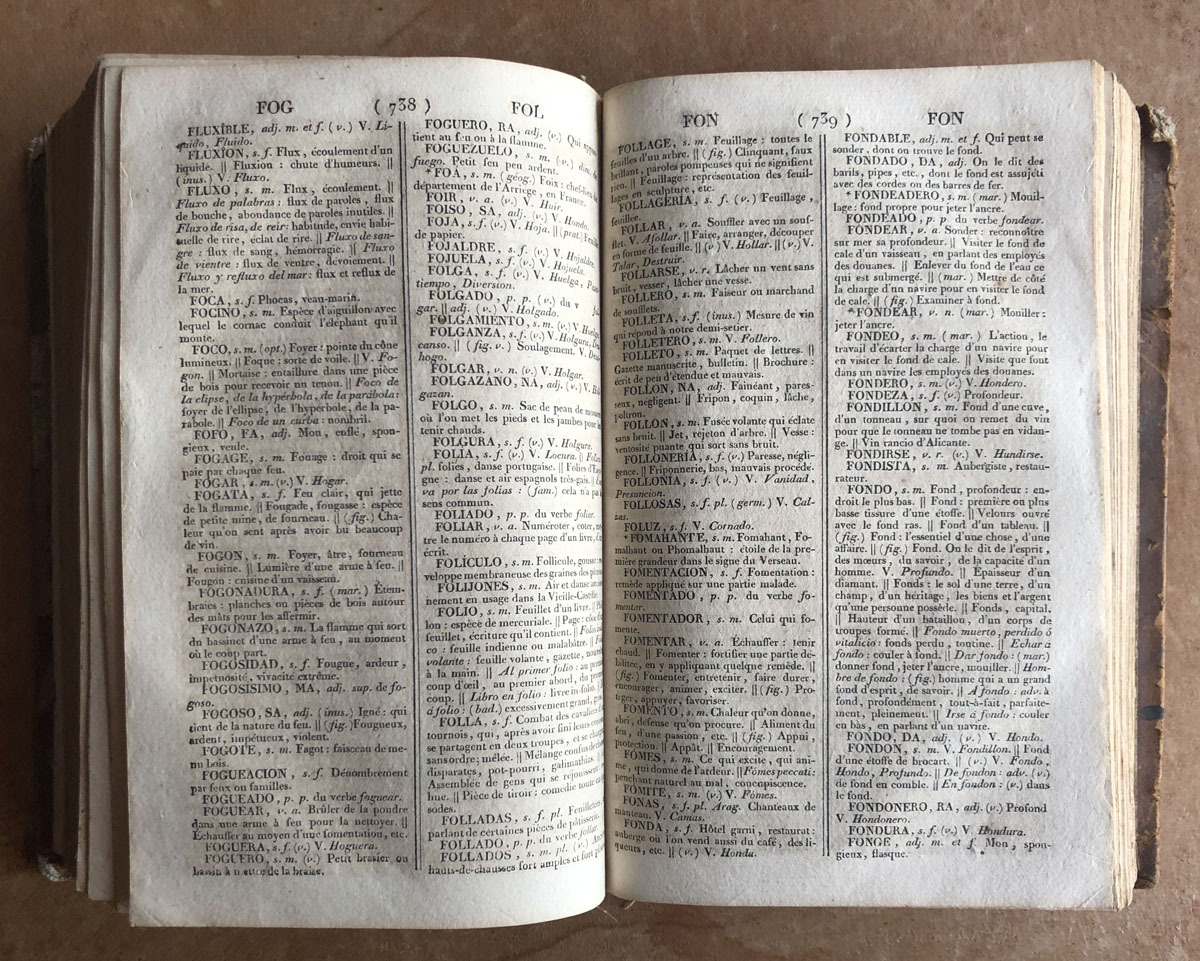 FOG ( 738 ) FOL
FLUXÍBLE, adj. m. et f. (v.) V. Li-
quido, Fluido.
FLUXION, s. f. Flux, écoulement d'un
liquide. || Fluxion : chute d'humeurs. ||
(inus.) V. Fluxo.
FLUXO, s. m. Flux, écoulement. ||
Fluxo de palabras : flux de paroles, flux
de bouche, abondance de paroles inutiles. ||
Fluxo de risa, de reir: habitude, envie habi-
tuelle de rire, éclat de rire. || Fluxo de san-
gre : flux de sang, hémorragie. || Fluxo
de vientre : flux de ventre, dévoiement. ||
Fluxo y refluxo del mar : flux et reflux de
la mer.
FOCA, s. f. Phocas, veau-marin.
FOCINO, s. m. Espèce d'aiguillon avec
lequel le cornac conduit l'éléphant qu'il
monte.
FOCO, s. m. (opt.) Foyer : pointe du cône
lumineux. || Foque : sorte de voile. || V. Fo-
gon. || Mortaise : entaillure dans une pièce
de bois pour recevoir un tenon. || Foco de
la elipse, de la hypérbola, de la parábola:
foyer de l'ellipse, de l'hyperbole, de la pa-
rabole. || Foco de un curba : nombril.
FOFO, FA, adj. Mou, enflé, spon-
gieux, veule.
FOGAGE, s. m. Fouage : droit qui se
paie par chaque feu.
FÓGAR, s. m. (v.) V. Hogar.
FOGATA, s. f. Feu clair, qui jette
de la flamme. || Fougade, fougasse : espèce
de petite mine, de fourneau. || (fig.) Cha-
leur qu'on sent après avoir bu beaucoup
de vin.
FOGON, s. m. Foyer, âtre, fourneau
de cuisine. || Lumière d'une arme à feu. ||
Fougon : cuisine d'un vaisseau.
FOGONADURA, s. f. (mar.) Étem-
braies : planches ou pièces de bois autour
des mâts pour les affermir.
FOGONAZO, s. m. La flamme qui sort
du bassinet d'une arme à feu, au moment
où le coup part.
FOGOSIDAD, s. f. Fougue, ardeur,
impétuosité, vivacité extrême.
FOGOSÍSIMO, MA, adj. sup. de fo-
goso.
FOGOSO, SA, adj. (inus.) Igné : qui
tient de la nature du feu. || (fig.) Fougueux,
ardent, impétueux, violent.
FOGOTE, s. m. Fagot : faisceau de me-
nu bois.
FOGUEACION, s. f. Dénombrement
par feux ou familles.
FOGUEADO, p. p. du verbe foguear.
FOGUEAR, v. a. Brûler de la poudre
dans une arme à feu pour la nettoyer. ||
Échauffer au moyen d'une fomentation, etc.
FOGUERA, s. f. (v.) V. Hoguera.
FOGUERO, s. m. (v.) Petit brasier ou
bassin à mettre de la braise.
FOGUERO, RA, adj. (v.) Qui
tient au feu ou à la flamme.
FOGUEZUELO, s. m. (v.) dim. de
fuego. Petit feu peu ardent.
*FOA, s. m. (géog.) Foix : chef-lieu du
département de l'Arriège, en France.
FOIR, v. a. (v.) V. Huir.
FOISO, SA, adj. (v.) V. Hondo.
FOJA, s. f. (v.) V. Hoja. || (prat.) Feuille
de papier.
FOJALDRE, s. f. (v.) V. Hojaldre.
FOJUELA, s. f. (v.) V. Hojuela.
FOLGA, s. f. (v.) V. Huelga,
tiempo, Diversion.
FOLGADO, p. p. (v.) du v
gar. || adj. (v.) V. Holgado.
FOLGAMIENTO, s. m. (v.) V.
FOLGANZA, s. f. (v.) V. Holgura,
canso. || (fig. v.) Soulagement. V.
hogo.
FOLGAR, v. n. (v.) V. Holgar.
FOLGAZANO, NA, adj. (v.) V.
gazan.
FOLGO, s. m. Sac de peau de
où l'on met les pieds et les jambes pour les
tenir chauds.
FOLGURA, s. f. (v.) V. Holgura.
FOLÍA, s. f. (v.) V. Locura. ||
pl. folies, danse portugaise. || Folies
gne : danse et air espagnols très-gais.
va por las folias : (fam.) cela n'a pas
sens commun.
FOLIADO, p. p. du verbe foliar.
FOLIAR, v. a. Numéroter, coter,
tre le numéro à chaque page d'un livre,
écrit.
FOLÍCULO, s. m. Follicule, gousse :
veloppe membraneuse des graines des
FOLIJONES, s. m. Air et danse
nement en usage dans la Vieille-Castille.
FOLIO, s. m. Feuillet d'un livre. ||
lon : espèce de mercuriale. || Page :
feuillet, écriture qu'il contient. || Folio
co : feuille indienne ou malabâtre. ||
volante : feuille volante, gazette,
à la main. || Al primer folio : au premier
coup d'œil, au premier abord, du
coup. || Libro en folio : livre in-folio. ||
á folio : (bad.) excessivement grand,
FOLLA, s. f. Combat des cavaliers
tournois, qui, après avoir fini leurs
se partagent en deux troupes, et se
sans ordre; mêlée. || Mélange confus de
disparates, pot-pourri, galimathias. ||
Assemblée de gens qui se réjouissent
hue. || Pièce de tiroir : comédie
sodes.
FOLLADAS, s. f. pl. Feuilletées
parlant de certaines pièces de pâtisserie.
FOLLADO, p. p. du verbe follar.
FOLLADOS, s. m. pl. (v.)
hauts-de-chausses fort amples et fort
FON ( 739 ) FON
FOLLAGE, s. m. Feuillage : toutes le
feuilles d'un arbre. || (fig.) Clinquant, faux
brillant, paroles pompeuses qui ne signifient
rien. || Feuillage : représentation des feuil-
lages en sculpture, etc.
FOLLAGERÍA, s. f. (v.) Feuillage,
feuillée.
FOLLAR, v. a. Souffler avec un souf-
flet. V. Afollar. || Faire, arranger, découper
en forme de feuille. || (v.) V. Hollar. || (v.) V.
Talar, Destruir.
FOLLARSE, v. r. Lâcher un vent sans
bruit, vesser, lâcher une vesse.
FOLLERO, s. m. Faiseur ou marchand
de soufflets.
FOLLETA, s. f. (inus.) Mesure de vin
qui répond à notre demi-setier.
FOLLETERO, s. m. V. Follero.
FOLLETO, s. m. Paquet de lettres. ||
Gazette manuscrite, bulletin. || Brochure :
écrit de peu d'étendue et mauvais.
FOLLON, NA, adj. Fainéant, pares-
seux, négligent. || Fripon, coquin, lâche,
poltron.
FOLLON, s. m. Fusée volante qui éclate
sans bruit. || Jet, rejeton d'arbre. || Vesse :
ventosité puante qui sort sans bruit.
FOLLONERÍA, s. f. (v.) Paresse, négli-
gence. || Friponnerie, bas, mauvais procédé.
FOLLONÍA, s. f. (v.) V. Vanidad,
Presuncion.
FOLLOSAS, s. f. pl. (germ.) V. Cal-
zas.
FOLUZ, s. f. V. Cornado.
*FOMAHANTE, s. m. Fomahant, Fo-
malhaut ou Phomalhaut : étoile de la pre-
mière grandeur dans le signe du Verseau.
FOMENTACION, s. f. Fomentation :
remède appliqué sur une partie malade.
FOMENTADO, p. p. du verbe fo-
mentar.
FOMENTADOR, s. m. Celui qui fo-
mente.
FOMENTAR, v. a. Échauffer : tenir
chaud. || Fomenter : fortifier une partie dé-
bilitée, en y appliquant quelque remède. ||
(fig.) Fomenter, entretenir, faire durer,
encourager, animer, exciter. || (fig.) Pro-
téger, appuyer, favoriser.
FOMENTO, s. m. Chaleur qu'on donne,
abri, défense qu'on procure. || Aliment du
feu, d'une passion, etc. || (fig.) Appui,
protection. || Appât. || Encouragement.
FÓMES, s. m. Ce qui excite, qui ani-
me, qui donne de l'ardeur. || Fómes peccati:
penchant naturel au mal, concupiscence.
FÓMITE, s. m. (v.) V. Fómes.
FONAS, s. f. pl. Arag. Chanteaux de
manteau. V. Camas.
FONDA, s. f. Hôtel garni, restaurat :
auberge où l'on vend aussi du café, des li-
queurs, etc. || (v.) V. Honda.
FONDABLE, adj. m. et f. Qui peut se
sonder, dont on trouve le fond.
FONDADO, DA, adj. On le dit des
barils, pipes, etc., dont le fond est assujéti
avec des cordes ou des barres de fer.
*FONDEADERO, s. m. (mar.) Mouil-
lage : fond propre pour jeter l'ancre.
FONDEADO, p. p. du verbe fondear.
FONDEAR, v. a. Sonder : reconnoître
sur mer sa profondeur. || Visiter le fond de
cale d'un vaisseau, en parlant des employés
des douanes. || Enlever du fond de l'eau ce
qui est submergé. || (mar.) Mettre de côté
la charge d'un navire pour en visiter le fond
de cale. || (fig.) Examiner à fond.
*FONDEAR, v. n. (mar.) Mouiller :
jeter l'ancre.
FONDEO, s. m. (mar.) L'action, le
travail d'écarter la charge d'un navire pour
en visiter le fond de cale. || Visite que font
dans un navire les employés des douanes.
FONDERO, s. m. (v.) V. Hondero.
FONDEZA, s. f. (v.) Profondeur.
FONDILLON, s. m. Fond d'une cuve,
d'un tonneau, sur quoi on remet du vin
pour que le tonneau ne tombe pas en vidan-
ge. || Vin rancio d'Alicante.
FONDIRSE, v. r. (v.) V. Hundirse.
FONDISTA, s. m. Aubergiste, restau-
rateur.
FONDO, s. m. Fond, profondeur : en-
droit le plus bas. || Fond : première ou plus
basse tissure d'une étoffe. || Velours ouvré
avec le fond ras. || Fond d'un tableau. ||
(fig.) Fond : l'essentiel d'une chose, d'une
affaire. || (fig.) Fond. On le dit de l'esprit,
des mœurs, du savoir, de la capacité d'un
homme. V. Profundo. || Épaisseur d'un
diamant. || Fonds : le sol d'une terre, d'un
champ, d'un héritage, les biens et l'argent
qu'une personne possède. || Fonds, capital.
|| Hauteur d'un bataillon, d'un corps de
troupes formé. || Fondo muerto, perdido ó
vitalicio : fonds perdu, tontine. || Echar á
fondo : couler à fond. || Dar fondo : (mar.)
donner fond, jeter l'ancre, mouiller. || Hom-
bre de fondo : (fig.) homme qui a un grand
fond d'esprit, de savoir. || A fondo : adv. à
fond, profondément, tout-à-fait, parfaite-
ment, pleinement. || Irse á fondo : couler
en bas, en parlant d'un navire.
FONDO, DA, adj. (v.) V. Hondo.
FONDON, s. m. V. Fondillon. || Fond
d'une étoffe de brocart. || (v.) V. Fondo,
Hondo, Profundo. || De fondon : adv. (v.)
de fond en comble. || En fondon : (v.) dans
le fond.
FONDONERO, RA, adj. (v.) Profond
V. Hondonero.
FONDURA, s. f. (v.) V. Hondura.
FONGE, adj. m. et f. Mou, spon-
gieux, flasque.